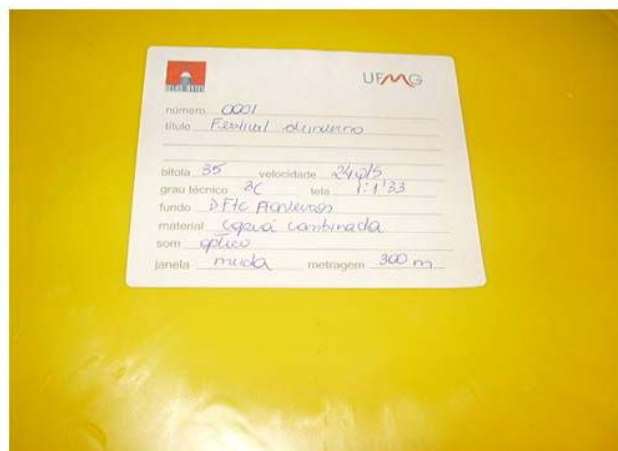 UFMG
número 0001
título Festival de inverno
bitola 35 velocidade 24 q/s
grau técnico 3C tela 1:1'33
fundo DFTC
material copia combinada
som optico
janela muda metragem 300 m